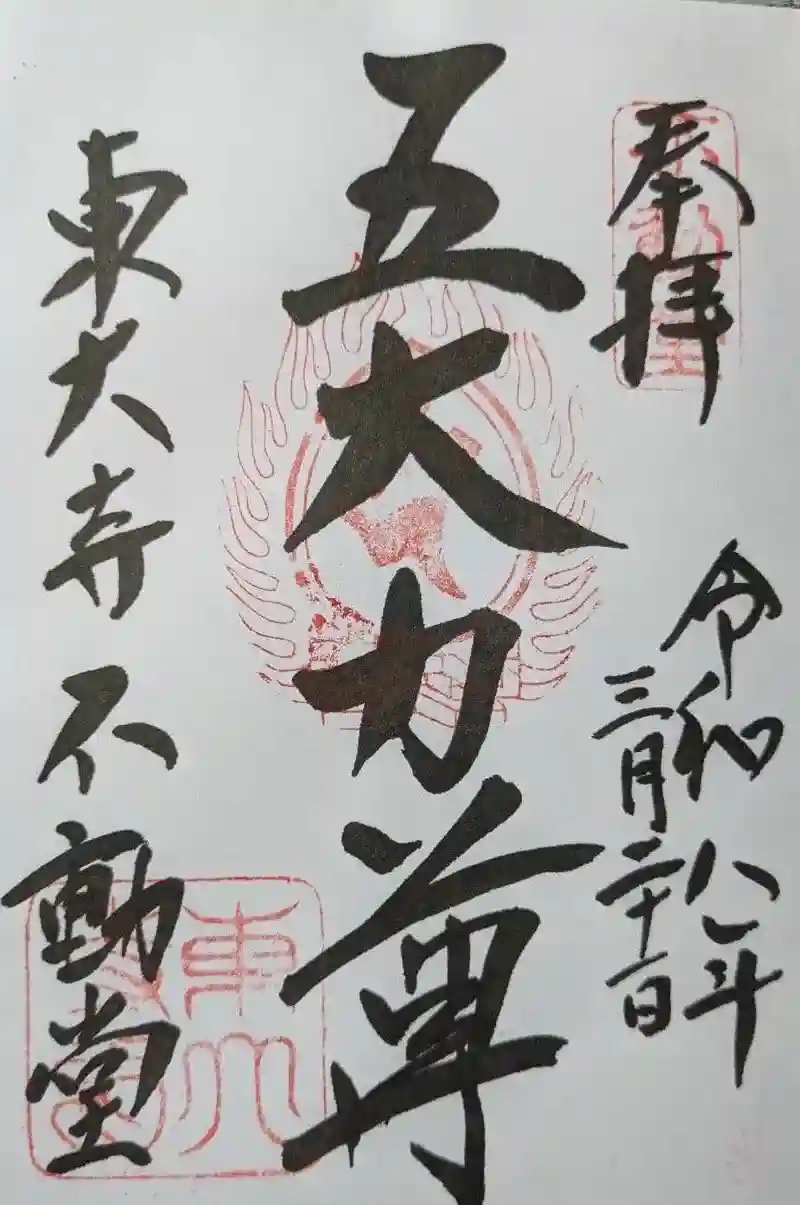 奉拝
令和八年
三月二十一日
五大力尊
東大寺不動堂